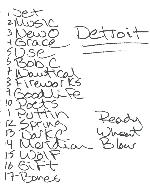 1 Set
2 Music
3 New O
4 Grace
Detroit
5 Use
6 Bob C
7 Nautical
8 Fireworks
9 Good Life
10 Poets
11 Puttin
Ready
12 Spring
Wheat
13 Dark
Blow
14 Meridian
15 Wolf
16 Gift
17 Bones